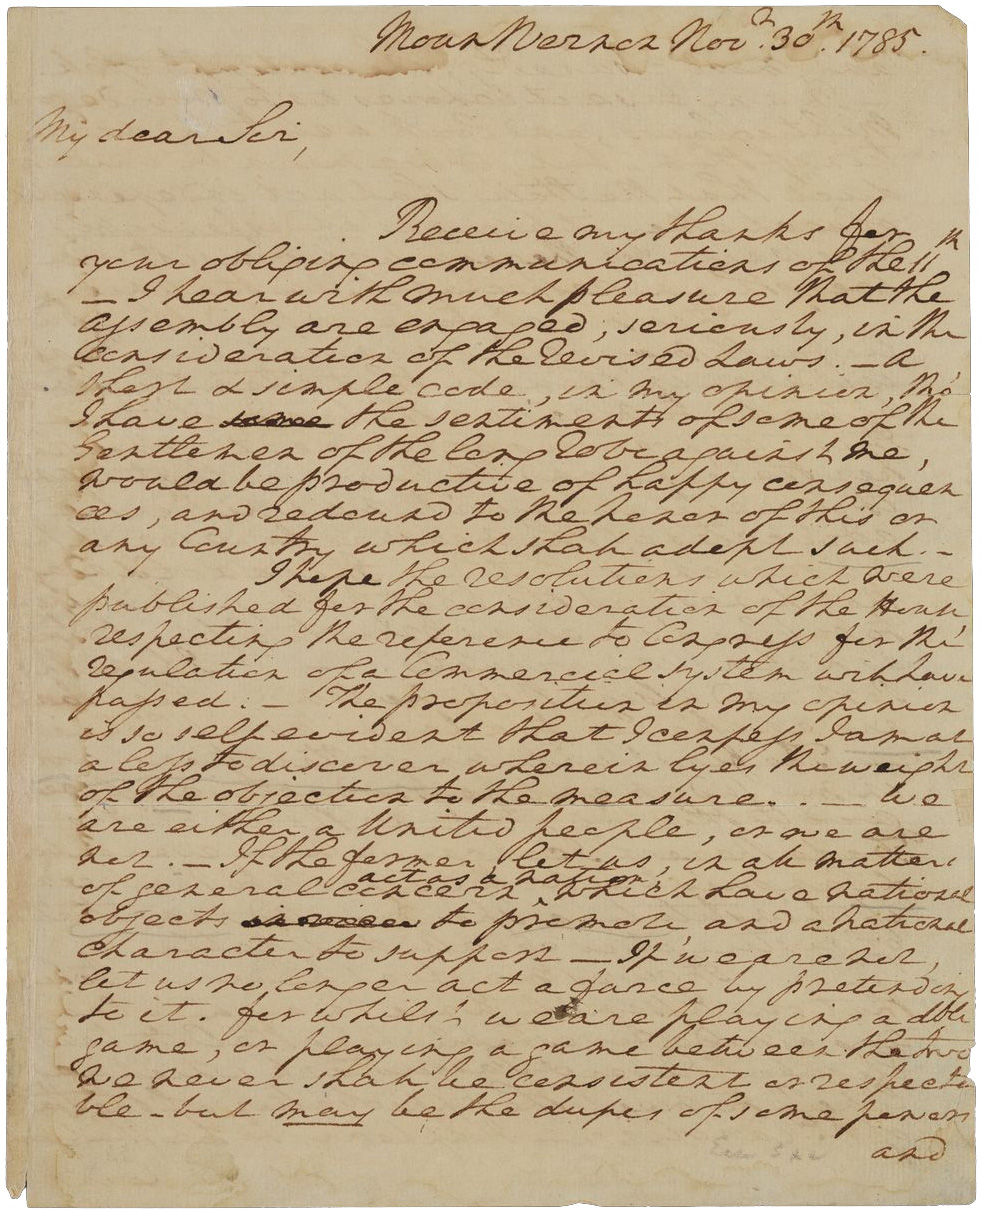 Mount Vernon Novr. 30th. 1785.
My dear Sir,
Receive my thanks for
your obliging communications of the 11th
— I hear with much pleasure that the
assembly are engaged, seriously, in the
consideration of the revised Laws. — A
short & simple code, in my opinion, tho'
I have the sentiments of some of the
Gentlemen of the long robe against me,
would be productive of happy consequen
ces, and redound to the honor of this or
any Country which shall adopt such. —
I hope the resolutions which were
published for the consideration of the House,
respecting the reference to Congress for the
regulation of a Commercial system will have
passed. — The proposition in my opinion
is so self evident that I confess I am at
a loss to discover wherein lyes the weight
of the objection to the measure. . — We
are either a United people, or we are
not. — If the former, let us, in all matters
of general concern act as a nation, which have national
objects to promote, and a national
character to support — If we are not,
let us no longer act a farce by pretending
to it. for whilst we are playing a dble
game, or playing a game between the two
we never shall be consistent or respecta
ble – but may be the dupes of some powers
and